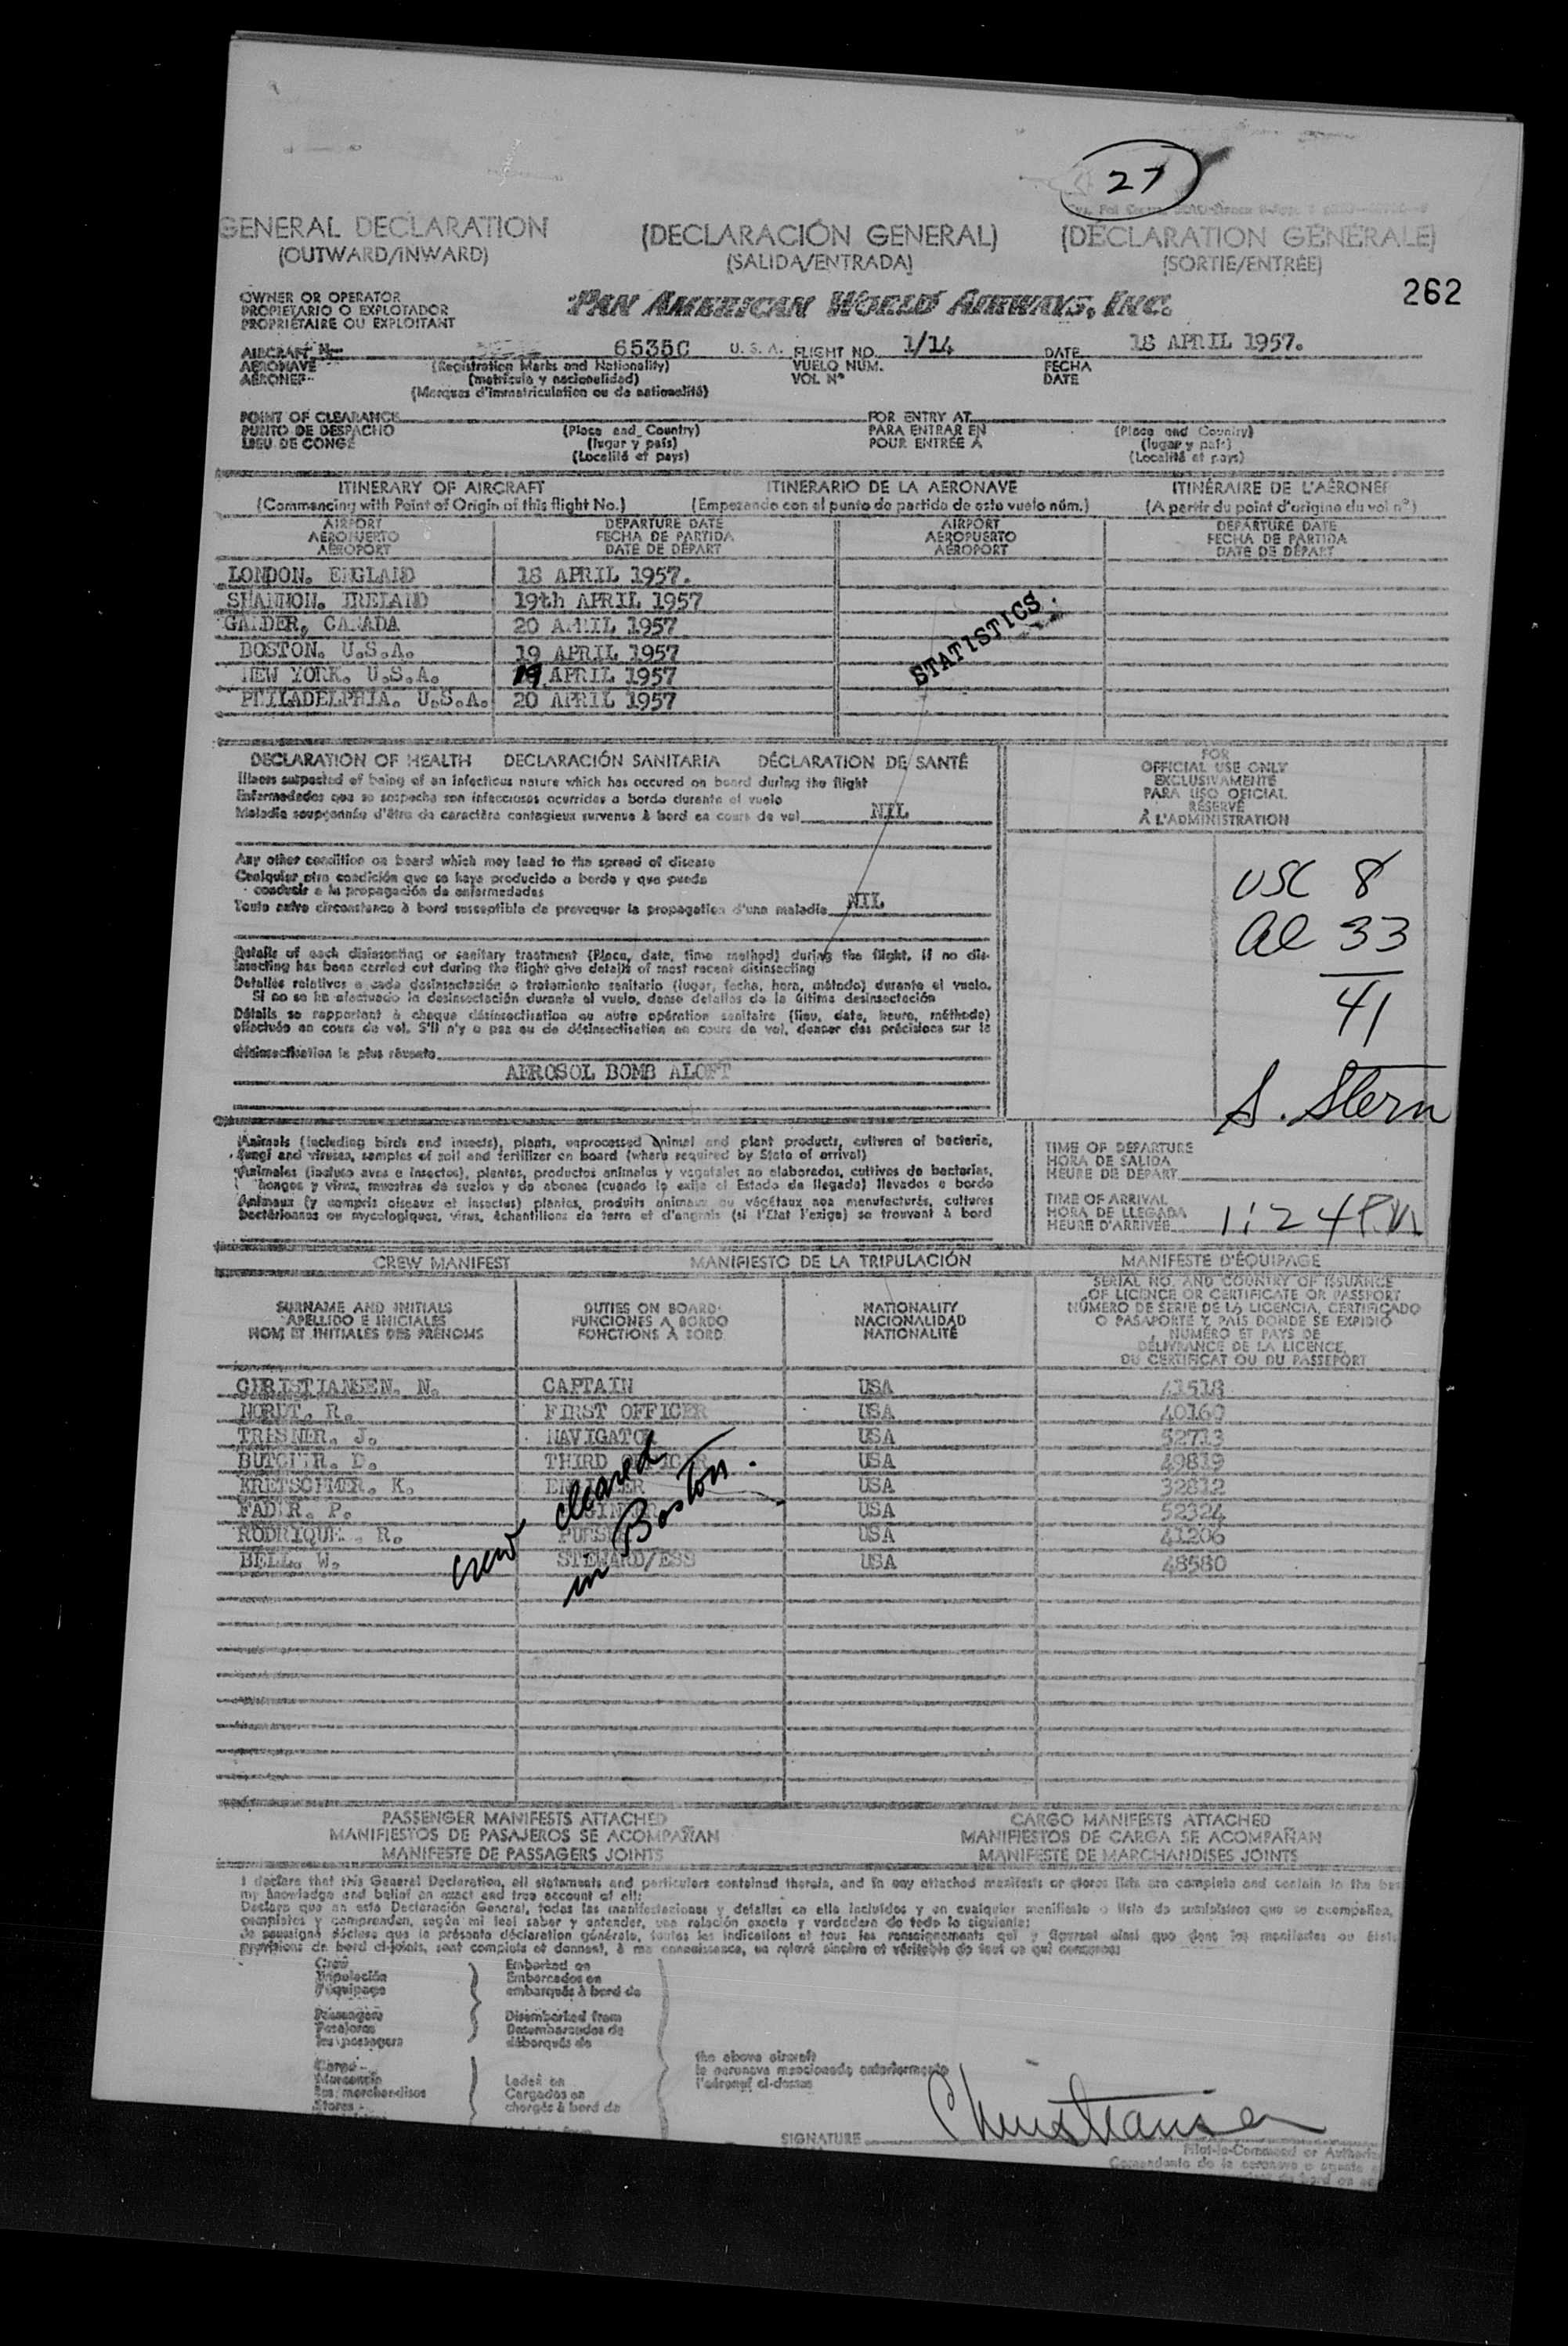 27
GENERAL DECLARATION (DECLARACIÓN GENERAL) (DÉCLARATION GÉNÉRALE)
(OUTWARD/INWARD) (SALIDA/ENTRADA) (SORTIE/ENTRÉE)
262
OWNER OR OPERATOR
PROPIETARIO O EXPLOTADOR
PROPRIÉTAIRE OU EXPLOITANT
PAN AMERICAN WORLD AIRWAYS, INC.
AIRCRAFT N 6535C U.S.A. FLIGHT NO. 1/14 DATE 18 APRIL 1957.
AERONAVE (Registration Marks and Nationality) VUELO NÚM. FECHA
AÉRONEF (matrícula y nacionalidad) VOL Nº DATE
(Marques d'immatriculation ou de nationalité)
POINT OF CLEARANCE FOR ENTRY AT
PUNTO DE DESPACHO (Place and Country) PARA ENTRAR EN (Place and Country)
LIEU DE CONGÉ (lugar y país) POUR ENTRÉE À (lugar y país)
(Localité et pays) (Localité et pays)
ITINERARY OF AIRCRAFT ITINERARIO DE LA AERONAVE ITINÉRAIRE DE L'AÉRONEF
(Commencing with Point of Origin of this flight No.) (Empezando con el punto de partida de este vuelo núm.) (A partir du point d'origine du vol nº)
AIRPORT DEPARTURE DATE AIRPORT DEPARTURE DATE
AEROPUERTO FECHA DE PARTIDA AEROPUERTO FECHA DE PARTIDA
AÉROPORT DATE DE DÉPART AÉROPORT DATE DE DÉPART
LONDON. ENGLAND 18 APRIL 1957.
SHANNON. IRELAND 19th APRIL 1957
GANDER, CANADA 20 APRIL 1957
BOSTON. U.S.A. 19 APRIL 1957
NEW YORK. U.S.A. 19 APRIL 1957
PHILADELPHIA. U.S.A. 20 APRIL 1957
STATISTICS.
DECLARATION OF HEALTH DECLARACIÓN SANITARIA DÉCLARATION DE SANTÉ
Illness suspected of being of an infectious nature which has occured on board during the flight
Enfermedades que se sospecha son infecciosas ocurridas a bordo durante el vuelo
Maladie soupçonnée d'être de caractère contagieux survenue à bord en cours de vol NIL
Any other condition on board which may lead to the spread of disease
Cualquier otra condición que se haya producido a bordo y que pueda
conducir a la propagación de enfermedades
Toute autre circonstance à bord susceptible de provoquer la propagation d'une maladie NIL
Details of each disinsecting or sanitary treatment (Place, date, time method) during the flight, if no dis-
insecting has been carried out during the flight give details of most recent disinsecting
Detalles relativos a cada desinsectación o tratamiento sanitario (lugar, fecha, hora, método) durante el vuelo.
Si no se ha efectuado la desinsectación durante el vuelo, dense detalles de la última desinsectación
Détails se rapportant à chaque désinsectisation ou autre opération sanitaire (lieu, date, heure, méthode)
effectuée en cours de vol. S'il n'y a pas eu de désinsectisation en cours de vol, donner des précisions sur la
désinsectisation la plus récente
AEROSOL BOMB ALOFT
FOR
OFFICIAL USE ONLY
EXCLUSIVAMENTE
PARA USO OFICIAL
RÉSERVÉ
À L'ADMINISTRATION
USC 8
Al 33
41
S. Stern
Animals (including birds and insects), plants, unprocessed animal and plant products, cultures of bacteria,
fungi and viruses, samples of soil and fertilizer on board (where required by State of arrival)
Animales (incluso aves e insectos), plantas, productos animales y vegetales no elaborados, cultivos de bacterias,
hongos y virus, muestras de suelos y de abonos (cuando lo exija el Estado de llegada) llevados a bordo
Animaux (y compris oiseaux et insectes) plantes, produits animaux ou végétaux non manufacturés, cultures
bactériennes ou mycologiques, virus, échantillons de terre et d'engrais (si l'Etat l'exige) se trouvant à bord
TIME OF DEPARTURE
HORA DE SALIDA
HEURE DE DÉPART
TIME OF ARRIVAL
HORA DE LLEGADA
HEURE D'ARRIVÉE 1:24 P.M
CREW MANIFEST MANIFIESTO DE LA TRIPULACIÓN MANIFESTE D'ÉQUIPAGE
SURNAME AND INITIALS
APELLIDO E INICIALES
NOM ET INITIALES DES PRÉNOMS
DUTIES ON BOARD
FUNCIONES A BORDO
FONCTIONS À BORD
NATIONALITY
NACIONALIDAD
NATIONALITÉ
SERIAL NO. AND COUNTRY OF ISSUANCE
OF LICENCE OR CERTIFICATE OR PASSPORT
NÚMERO DE SERIE DE LA LICENCIA, CERTIFICADO
O PASAPORTE Y PAÍS DONDE SE EXPIDIÓ
NUMÉRO ET PAYS DE
DÉLIVRANCE DE LA LICENCE,
DU CERTIFICAT OU DU PASSEPORT
CHRISTIANSEN. N. CAPTAIN USA 41518
NORDT. R. FIRST OFFICER USA 40160
TRISNER. J. NAVIGATOR USA 52713
BUTCHER. D. THIRD OFFICER USA 49819
KRETSCHMER. K. ENGINEER USA 32812
FADER. P. USA 52324
RODRIQUE . R. PURSER USA 41206
BELL. W. STEWARD/ESS USA 48580
crew cleared
in Boston.
PASSENGER MANIFESTS ATTACHED CARGO MANIFESTS ATTACHED
MANIFIESTOS DE PASAJEROS SE ACOMPAÑAN MANIFIESTOS DE CARGA SE ACOMPAÑAN
MANIFESTE DE PASSAGERS JOINTS MANIFESTE DE MARCHANDISES JOINTS
I declare that this General Declaration, all statements and particulars contained therein, and in any attached manifests or stores lists are complete and contain to the bes
my knowledge and belief an exact and true account of all:
Declaro que en esta Declaración General, todas las manifestaciones y detalles en ella incluidos y en cualquier manifiesto o lista de suministros que se acompañen,
completos y comprenden, según mi leal saber y entender, una relación exacta y verdadera de todo lo siguiente:
Je soussigné déclare que la présente déclaration générale, toutes les indications et tous les renseignements qui y figurent ainsi que dans les manifestes ou états
provisions de bord ci-joints, sont complets et donnent, à ma connaissance, un relevé sincère et véritable de tout ce qui concerne:
Crew Embarked on
Tripulación Embarcados en
l'équipage embarqués à bord de
Passengers Disembarked from
Pasajeros Desembarcados de
les passagers débarqués de
Cargo Laden on
Mercancía Cargados en
les marchandises chargés à bord de
Stores
the above aircraft
la aeronave mencionada anteriormente
l'aéronef ci-dessus
SIGNATURE Christiansen
Pilot-in-Command or Authoriz
Comandante de la aeronave o agente